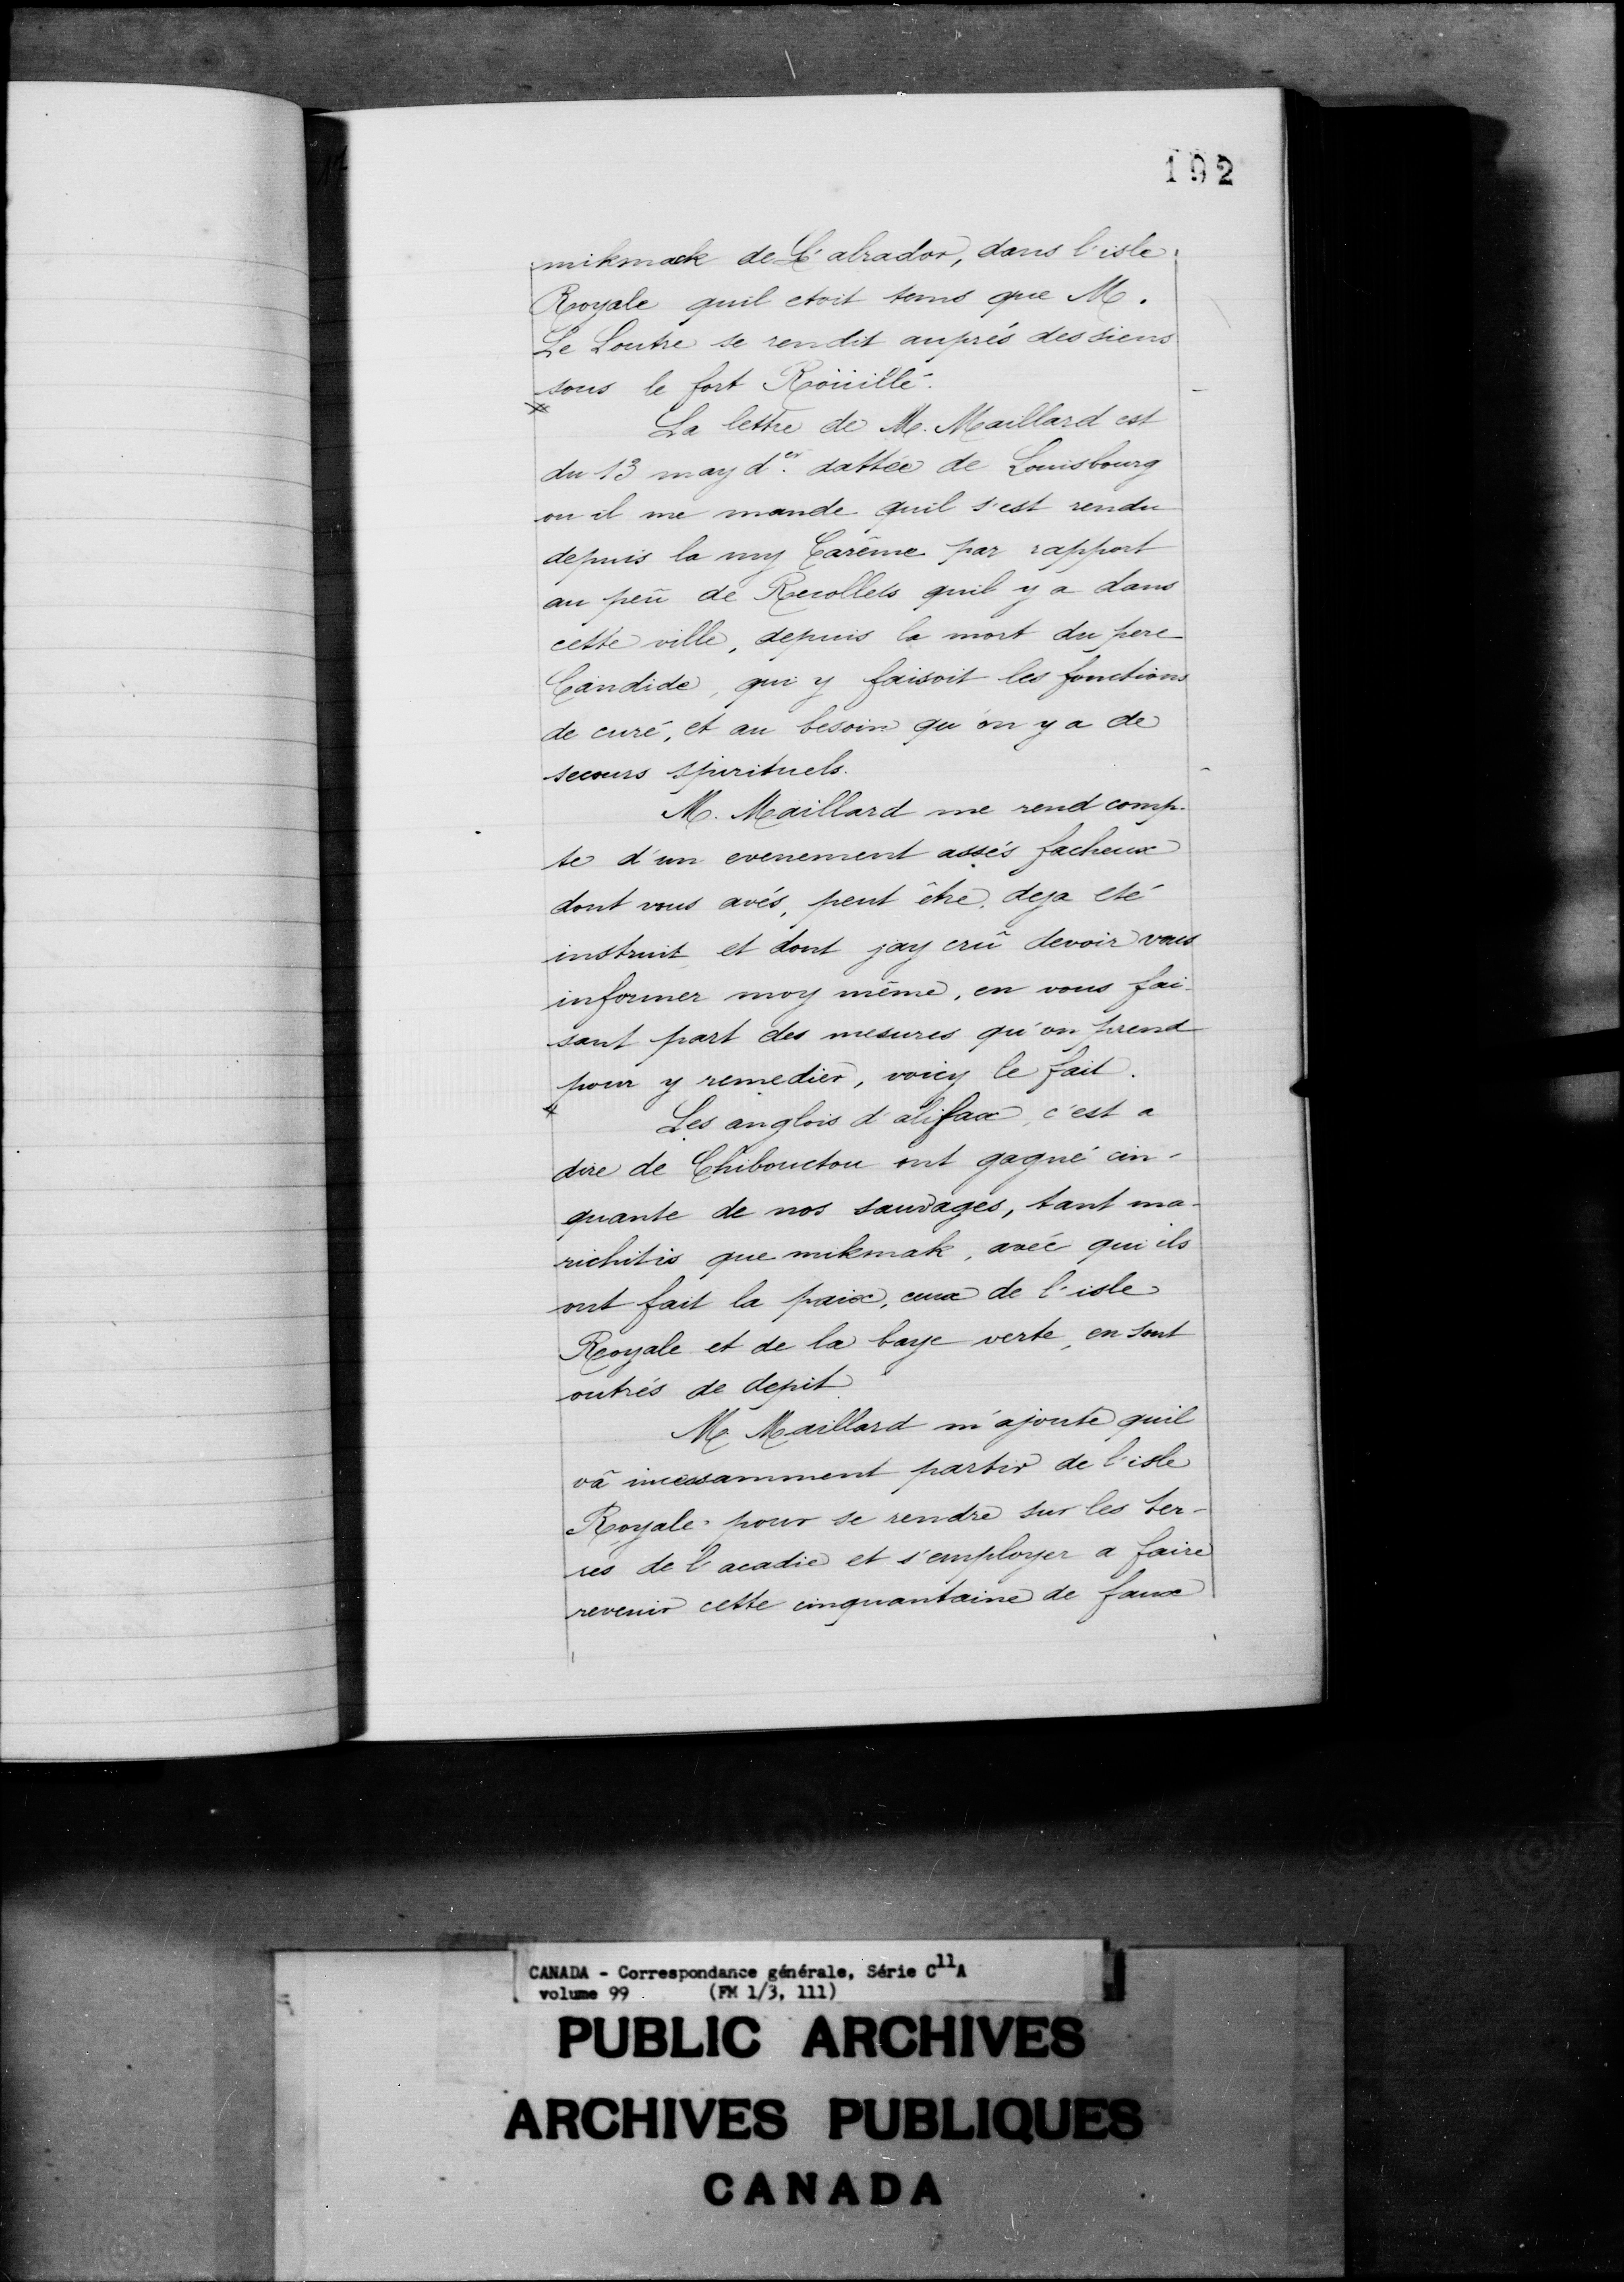 192
mikmack de L'abrador, dans l'isle
Royale quil etoit tems que M.
Le Loutre se rendit auprés des siens
sous le fort Roüillé.
La lettre de M. Maillard est
du 13 may d.er dattée de Louisbourg
ou il me mande quil s'est rendu
depuis la my Carême par rapport
au peû de Recollets quil y a dans
cette ville, depuis la mort du pere
Candide, qui y faisoit les fonctions
de curé, et au besoin qu'on y a de
secours spirituels.
M. Maillard me rend comp-
te d'un evenement assés facheux
dont vous avés, peut être, deja eté
instruit et dont jay crû devoir vous
informer moy même, en vous fai-
sant part des mesures qu'on prend
pour y remedier, voicy le fait.
Les anglois d'alifax, c'est a
dire de Chibouctou ont gagné cin-
quante de nos sauvages, tant ma-
richitis que mikmak, avéc qui ils
ont fait la paix, ceux de l'isle
Royale et de la baye verte, en sont
outrés de depit.
M Maillard m'ajoute quil
vâ incessamment partir de l'isle
Royale pour se rendre sur les ter-
res de l'acadie et s'employer a faire
revenir cette cinquantaine de faux
CANADA - Correspondance générale, Série C11A
volume 99 (FM 1/3, 111)
PUBLIC ARCHIVES
ARCHIVES PUBLIQUES
CANADA